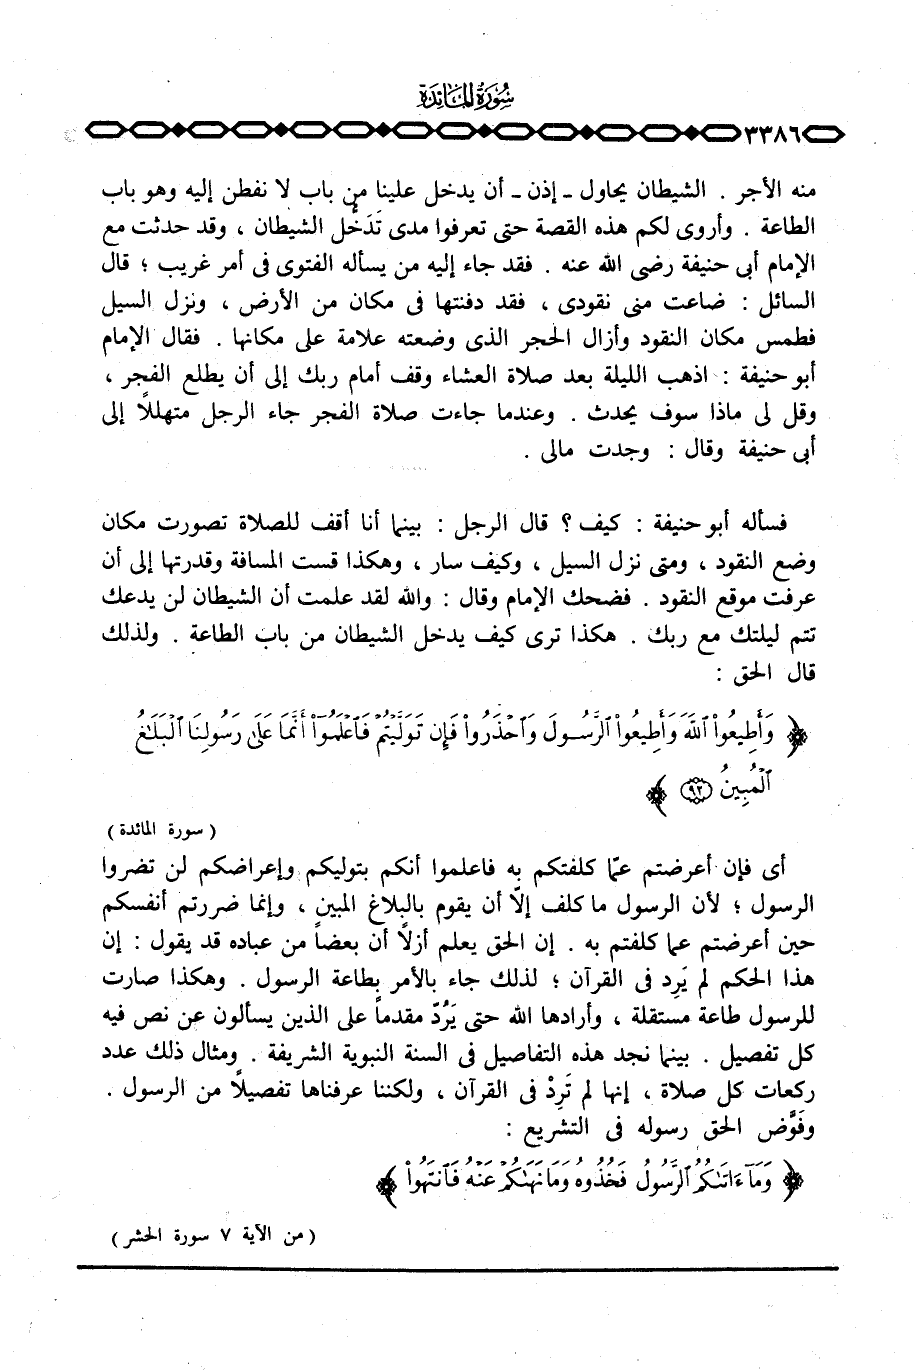 سورة المائدة
٣٣٨٦
منه الأجر . الشيطان يحاول ـ إذن ـ أن يدخل علينا من باب لا نفطن إليه وهو باب
الطاعة . وأروى لكم هذه القصة حتى تعرفوا مدى تَدَخُّل الشيطان ، وقد حدثت مع
الإمام أبى حنيفة رضى الله عنه . فقد جاء إليه من يسأله الفتوى فى أمر غريب ؛ قال
السائل : ضاعت منى نقودى ، فقد دفنتها فى مكان من الأرض ، ونزل السيل
فطمس مكان النقود وأزال الحجر الذى وضعته علامة على مكانها . فقال الإمام
أبو حنيفة : اذهب الليلة بعد صلاة العشاء وقف أمام ربك إلى أن يطلع الفجر ،
وقل لى ماذا سوف يحدث . وعندما جاءت صلاة الفجر جاء الرجل متهللاً إلى
أبى حنيفة وقال : وجدت مالى .
فسأله أبو حنيفة : كيف ؟ قال الرجل : بينما أنا أقف للصلاة تصورت مكان
وضع النقود ، ومتى نزل السيل ، وكيف سار ، وهكذا قست المسافة وقدرتها إلى أن
عرفت موقع النقود . فضحك الإمام وقال : والله لقد علمت أن الشيطان لن يدعك
تتم ليلتك مع ربك . هكذا ترى كيف يدخل الشيطان من باب الطاعة . ولذلك
قال الحق :
﴿ وَأَطِيعُوا۟ ٱللَّهَ وَأَطِيعُوا۟ ٱلرَّسُولَ وَٱحْذَرُوا۟ فَإِن تَوَلَّيْتُمْ فَٱعْلَمُوٓا۟ أَنَّمَا عَلَىٰ رَسُولِنَا ٱلْبَلَـٰغُ
ٱلْمُبِينُ ﴿٩٢﴾ ﴾
( سورة المائدة )
أى فإن أعرضتم عمّا كلفتكم به فاعلموا أنكم بتوليكم وإعراضكم لن تضروا
الرسول ؛ لأن الرسول ما كلف إلّا أن يقوم بالبلاغ المبين ، وإنما ضررتم أنفسكم
حين أعرضتم عما كلفتم به . إن الحق يعلم أزلاً أن بعضاً من عباده قد يقول : إن
هذا الحكم لم يَرِد فى القرآن ؛ لذلك جاء بالأمر بطاعة الرسول . وهكذا صارت
للرسول طاعة مستقلة ، وأرادها الله حتى يَرُدّ مقدماً على الذين يسألون عن نص فيه
كل تفصيل . بينما نجد هذه التفاصيل فى السنة النبوية الشريفة . ومثال ذلك عدد
ركعات كل صلاة ، إنها لم تَرِدْ فى القرآن ، ولكننا عرفناها تفصيلاً من الرسول .
وفَوَّض الحق رسوله فى التشريع :
﴿ وَمَآ ءَاتَىٰكُمُ ٱلرَّسُولُ فَخُذُوهُ وَمَا نَهَىٰكُمْ عَنْهُ فَٱنتَهُوا۟ ﴾
( من الآية ٧ سورة الحشر )